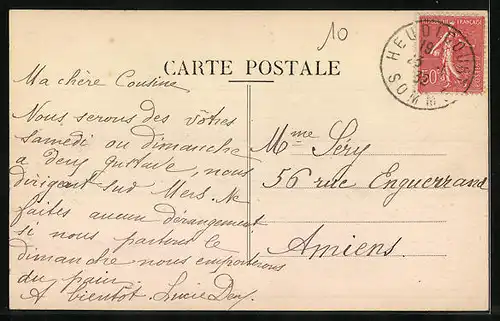 10
CARTE POSTALE
HEUDICOURT
19
SOMME
50
Ma chère Cousine
Nous serons des vôtres
samedi ou dimanche
a deux Gustave, nous
dirigeant sud Mers. Ne
faites aucun dérangement
si nous partons le
dimanche nous emporterons
du pain
A bientôt. Lucie
Mme Sery
56 rue Enguerrand
Amiens